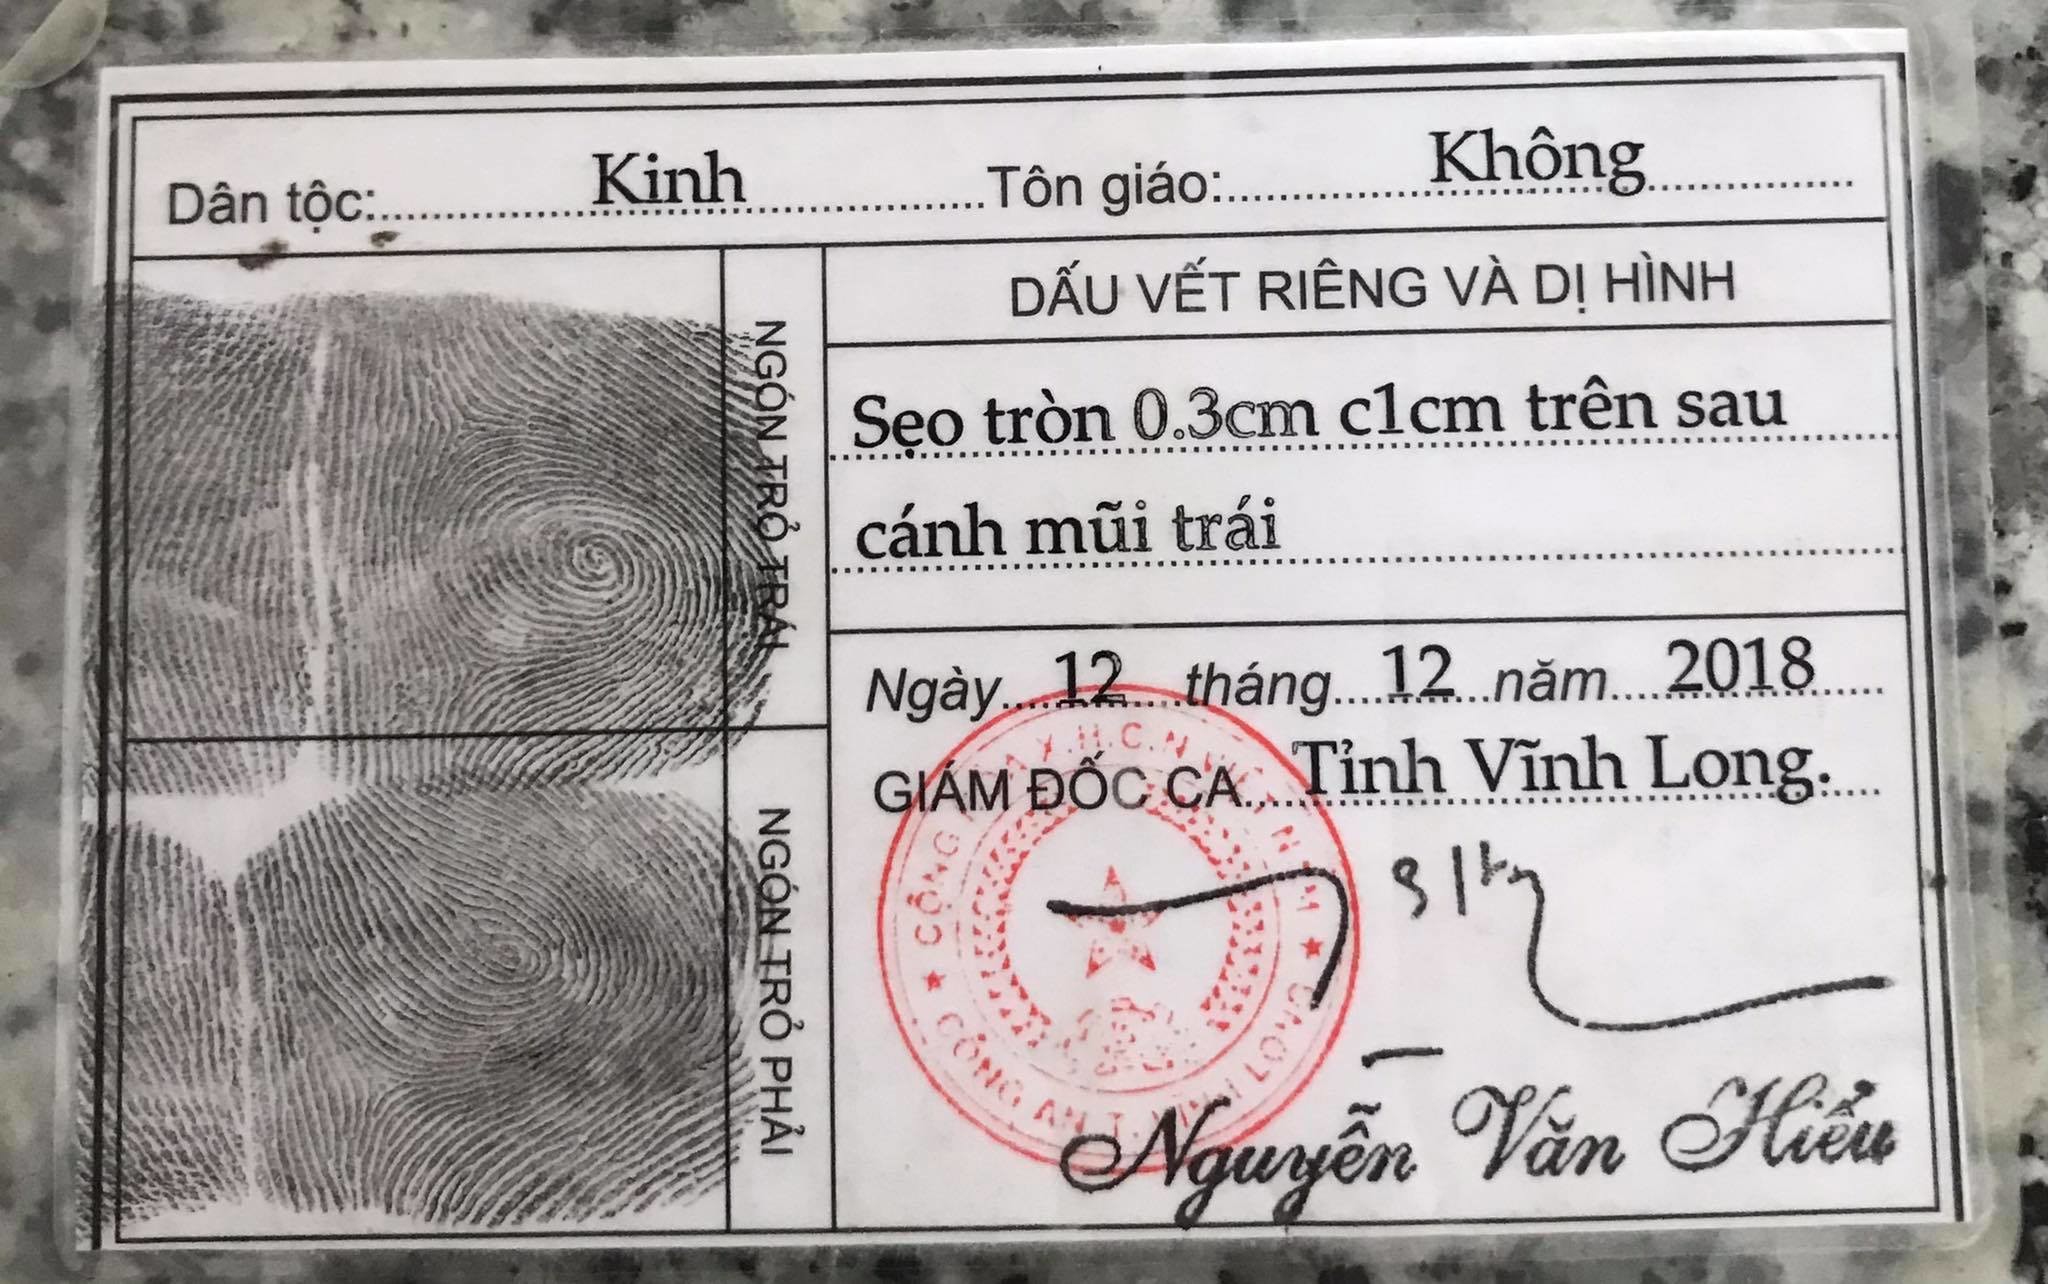 Dân tộc: Kinh Tôn giáo: Không
NGÓN TRỎ TRÁI
NGÓN TRỎ PHẢI
DẤU VẾT RIÊNG VÀ DỊ HÌNH
Sẹo tròn 0.3cm c1cm trên sau
cánh mũi trái
Ngày 12 tháng 12 năm 2018
GIÁM ĐỐC CA Tỉnh Vĩnh Long.
CÔNG AN T. VĨNH LONG
Nguyễn Văn Hiểu